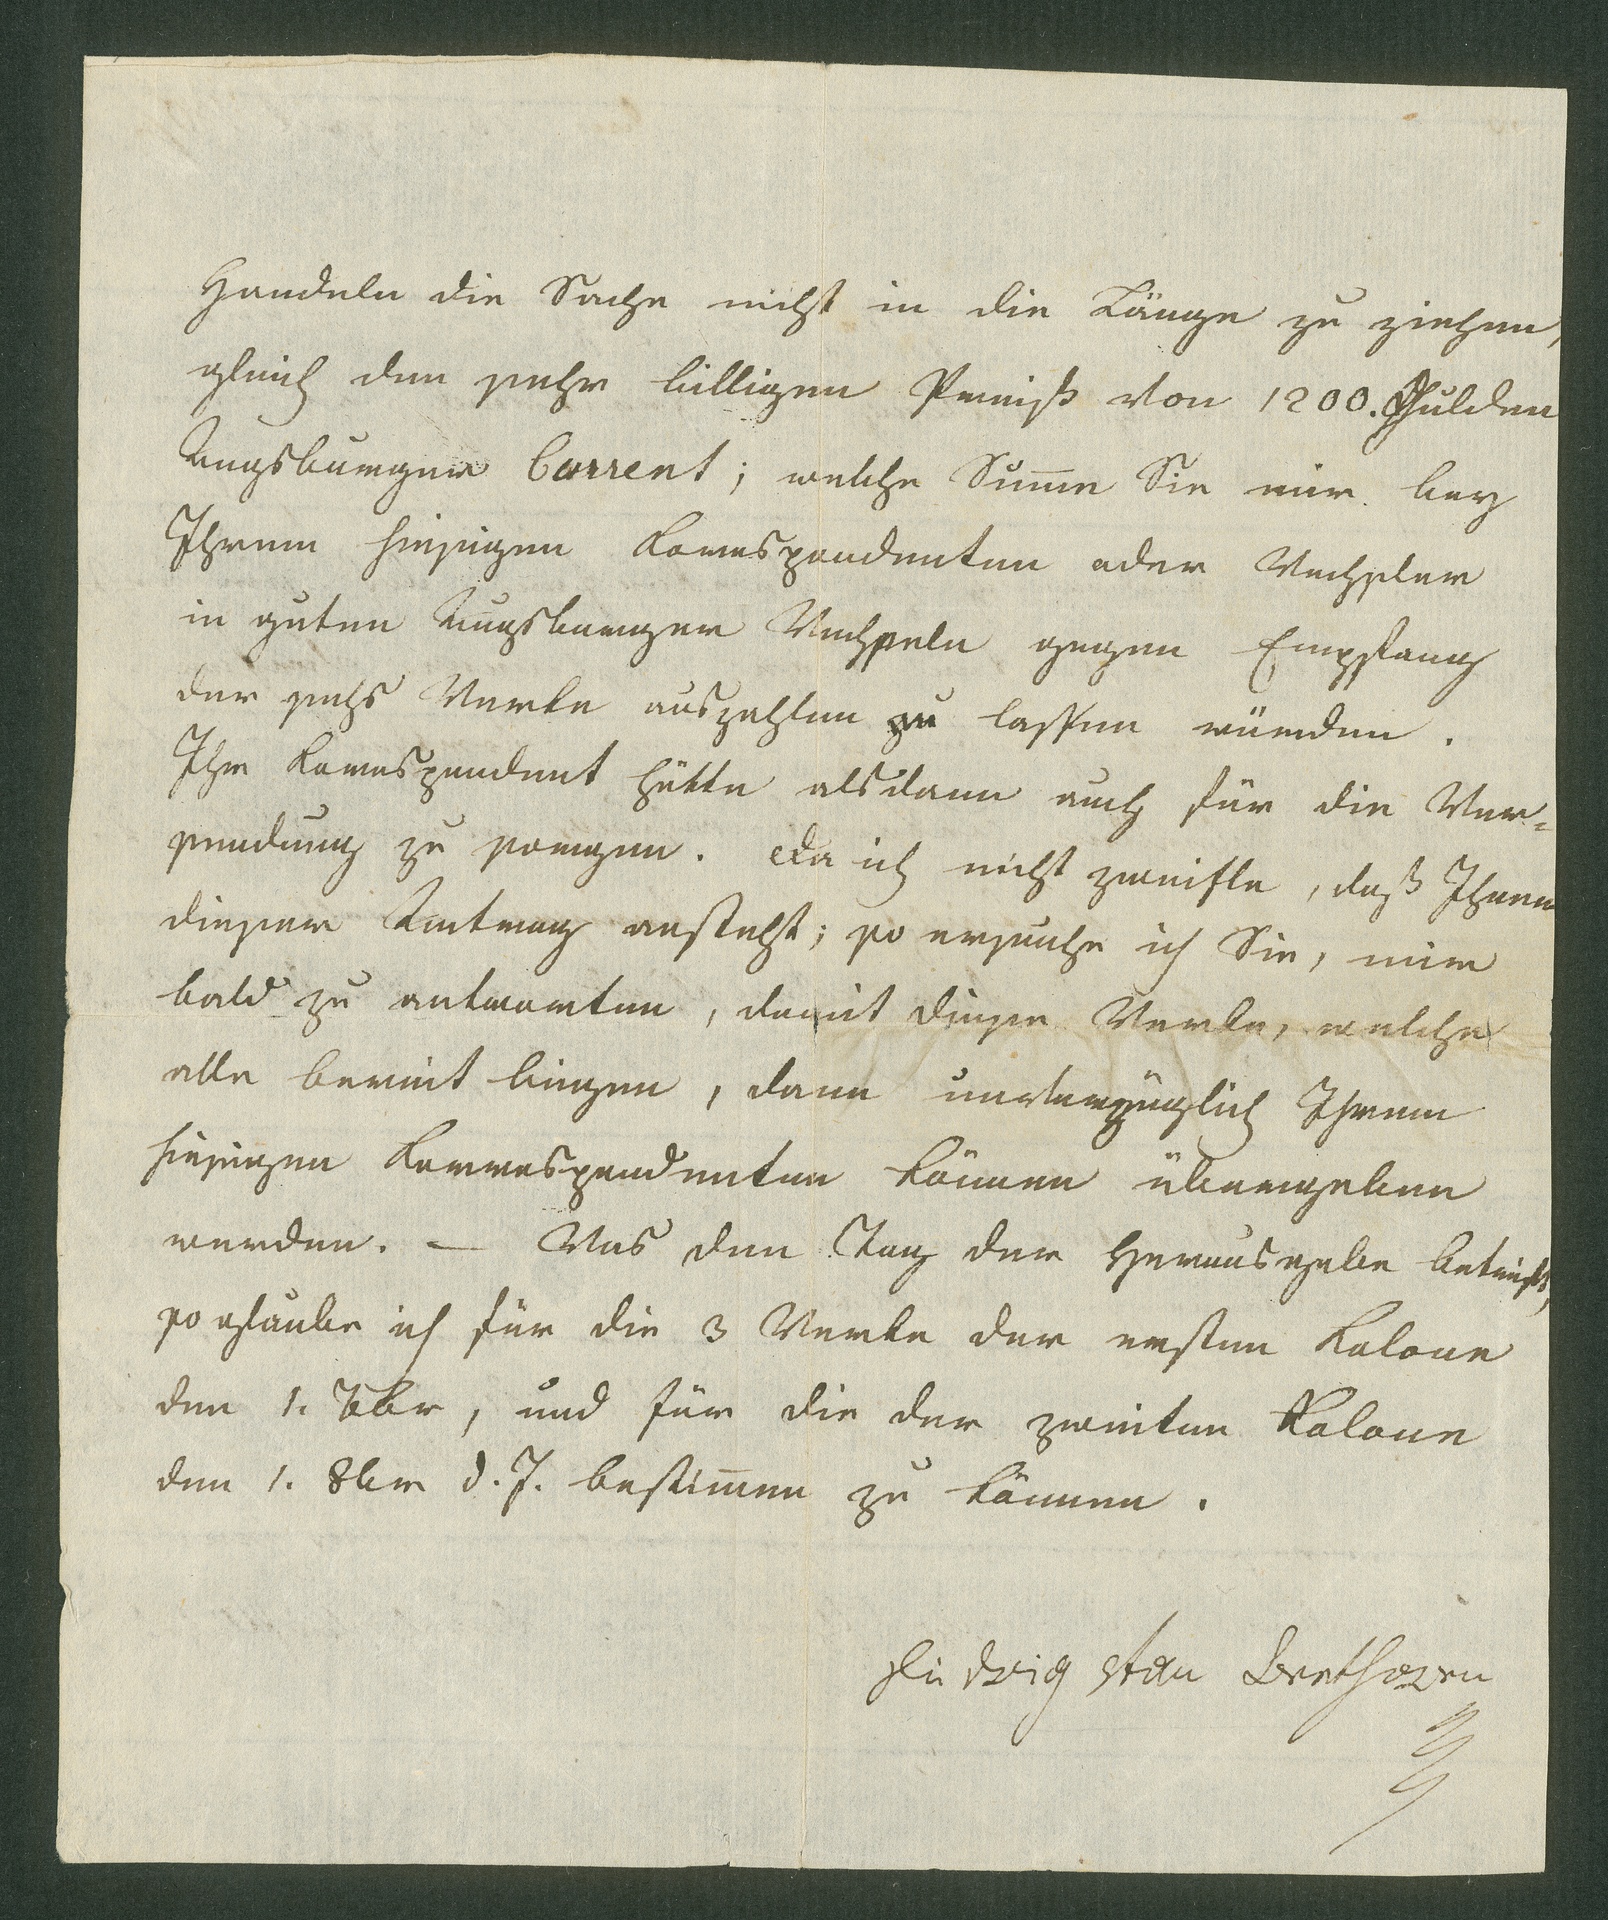 Handeln die Sache nicht in die Länge zu ziehen,
gleich den sehr billigen Preiß von 1200. Gulden
Augsburger Current; welche Sum̅e Sie mir bey
Ihrem hiesigen Korrespondenten oder Wechsler
in guten Augsburger Wechseln gegen Empfang
der sechs Werke auszahlen zu lassen würden.
Ihr Korrespondent hätte alsdann auch für die Ver=
sendung zu sorgen. Da ich nicht zweifle, daß Ihnen
dieser Antrag ansteht; so ersuche ich Sie, mir
bald zu antworten, damit diese Werke, welche
alle bereit liegen, dann unverzüglich Ihrem
hiesigen Korrespondenten können übergeben
werden. — Was den Tag der Herausgabe betrift,
so glaube ich für die 3 Werke der ersten Kolone
den 1. 7br, und für die der zweiten Kolone
den 1. 8br d. J. bestim̅en zu können.
Ludwig van Beethoven